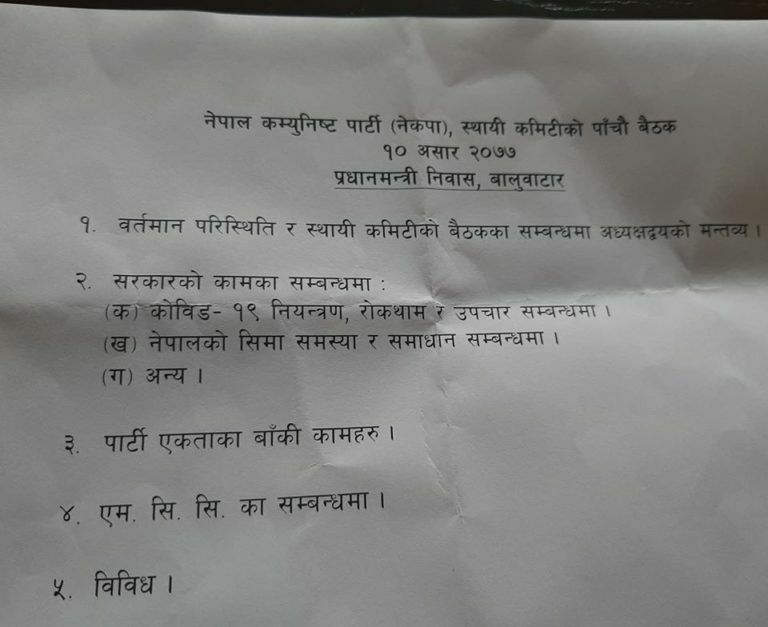 नेपाल कम्युनिष्ट पार्टी (नेकपा), स्थायी कमिटीको पाँचौ बैठक
१० असार २०७७
प्रधानमन्त्री निवास, बालुवाटार
१. वर्तमान परिस्थिति र स्थायी कमिटीको बैठकका सम्बन्धमा अध्यक्षद्वयको मन्तव्य ।
२. सरकारको कामका सम्बन्धमा :
(क) कोविड- १९ नियन्त्रण, रोकथाम र उपचार सम्बन्धमा ।
(ख) नेपालको सिमा समस्या र समाधान सम्बन्धमा ।
(ग) अन्य ।
३. पार्टी एकताका बाँकी कामहरु ।
४. एम. सि. सि. का सम्बन्धमा ।
५. विविध ।